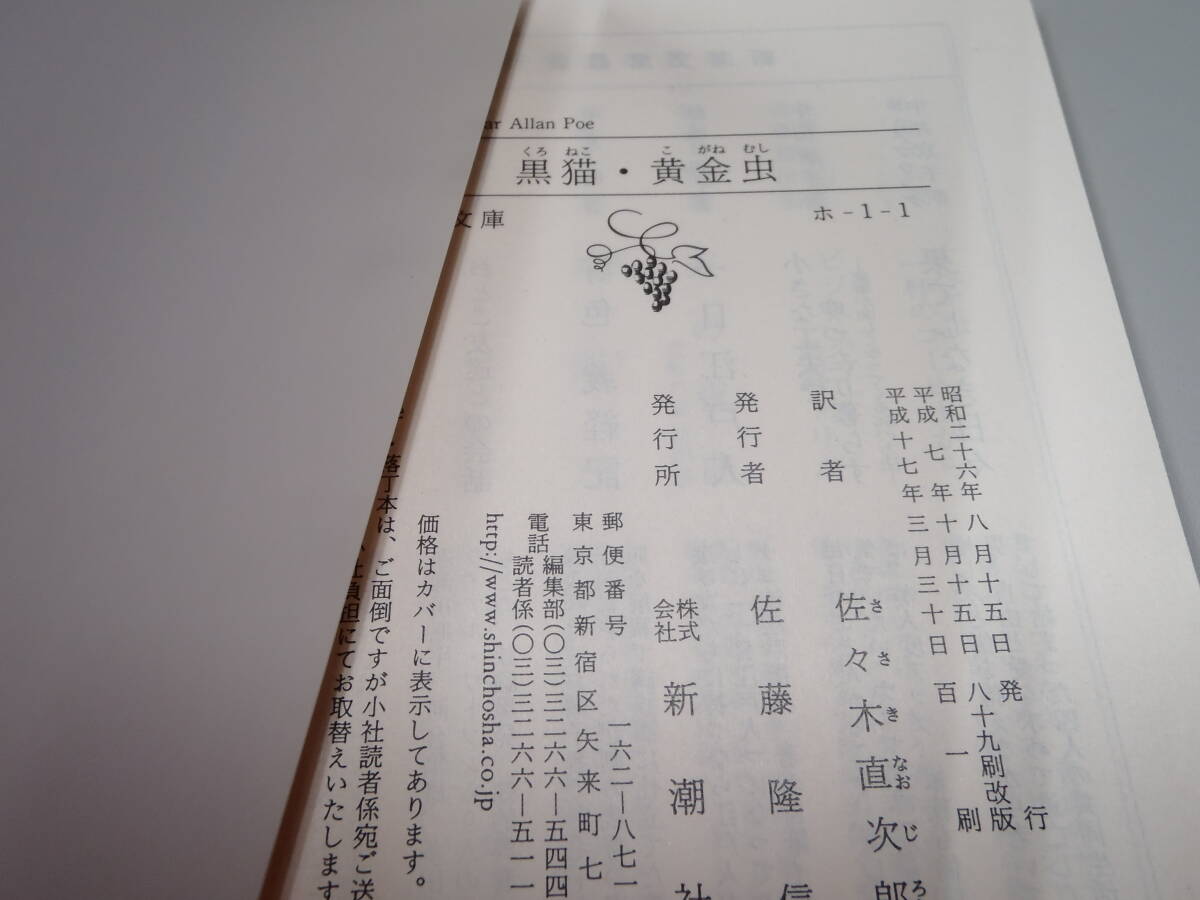 ar Allan Poe
黒猫・黄金虫
くろ ねこ こ がね むし
文庫 ホ-1-1
昭和二十六年八月十五日 発行
平成七年十月十五日 八十九刷改版
平成十七年三月三十日 百一刷
訳者 佐々木直次郎
さ さ き なお じ ろ
発行者 佐藤隆信
発行所 株式会社 新潮社
郵便番号 一六二―八七一
東京都新宿区矢来町七
電話 編集部(〇三)三二六六―五四四
読者係(〇三)三二六六―五一一
http://www.shinchosha.co.jp
価格はカバーに表示してあります。
落丁本は、ご面倒ですが小社読者係宛ご送
負担にてお取替えいたします